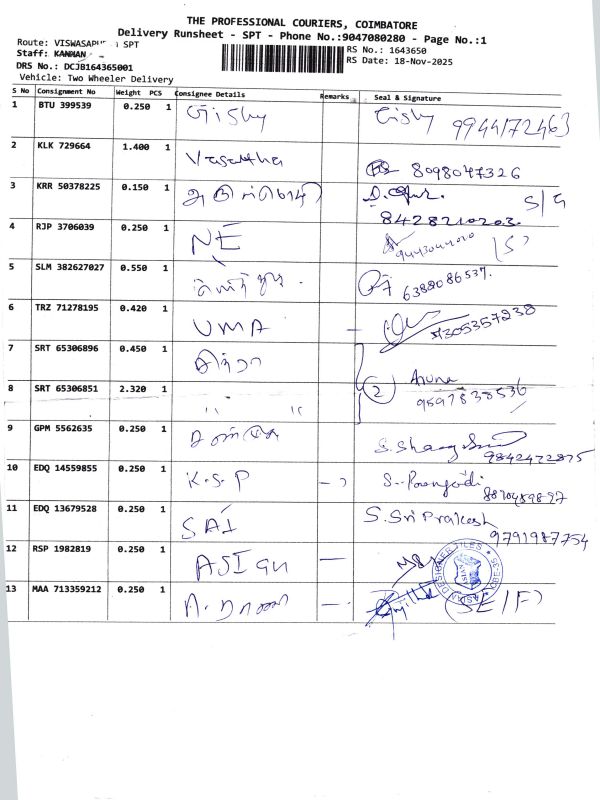 THE PROFESSIONAL COURIERS, COIMBATORE
Delivery Runsheet - SPT - Phone No.:9047080280 - Page No.:1
Route: VISWASAPU SPT
RS No.: 1643650
Staff: KANNAN
RS Date: 18-Nov-2025
DRS No.: DCJB164365001
Vehicle: Two Wheeler Delivery
S No Consignment No Weight PCS Consignee Details Remarks Seal & Signature
1 BTU 399539 0.250 1 Girshy Girshy 9944172463
2 KLK 729664 1.400 1 Vasantha 8098047326
3 KRR 50378225 0.150 1 S/G
8428210203
4 RJP 3706039 0.250 1 NE (S)
5 SLM 382627027 0.550 1 6388086537.
6 TRZ 71278195 0.420 1 UMA - 9305357238
7 SRT 65306896 0.450 1 சித்ரா
Aruna
8 SRT 65306851 2.320 1 " " 2 9597838536
9 GPM 5562635 0.250 1
9842472875
10 EDQ 14559855 0.250 1 K.S.P - S. Poongodi
8870489897
11 EDQ 13679528 0.250 1 SAI S. Sri Prakash
9791987754
12 RSP 1982819 0.250 1 ASIAN -
ASIAN DESIGNER TILES CBE-35
13 MAA 713359212 0.250 1 - (SE/F)